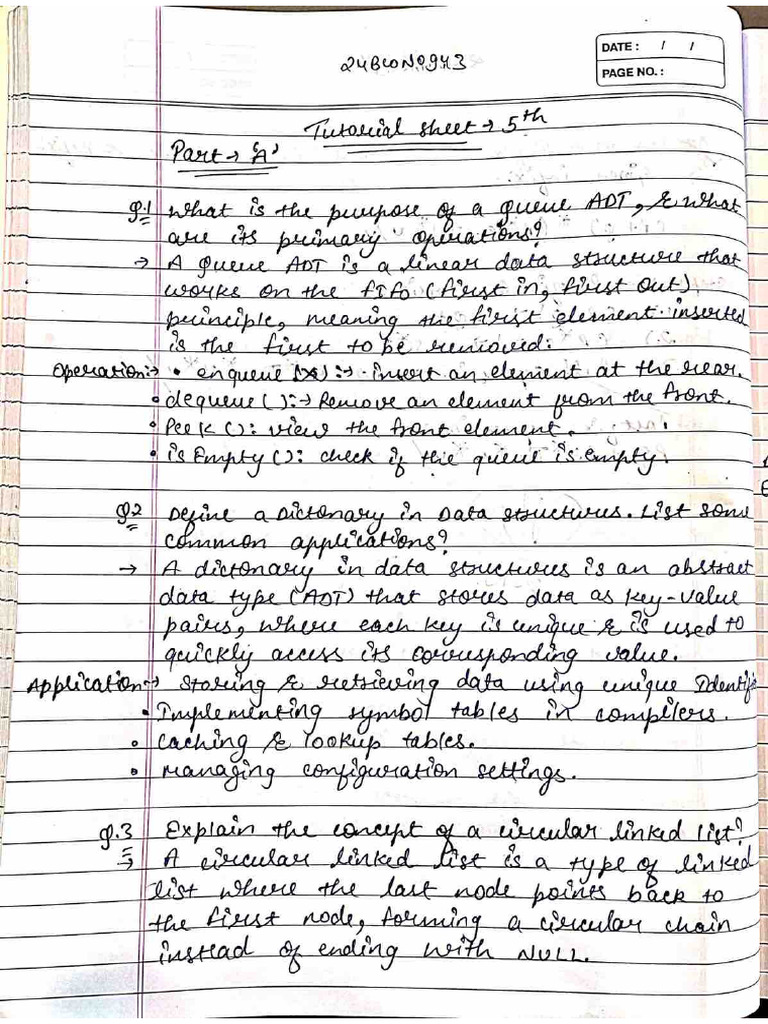 24BCON0943
DATE: / /
PAGE NO.:
Tutorial sheet → 5th
Part → 'A'
Q.1 What is the purpose of a queue ADT, & what
are its primary operations?
→ A queue ADT is a linear data structure that
works on the FIFO (first in, first out)
principle, meaning the first element inserted
is the first to be removed.
Operation:→ • enqueue (x) :→ insert an element at the rear.
• dequeue ( ) :→ Remove an element from the front.
• Peek () : view the front element.
• is Empty () : check if the queue is empty.
Q.2 Define a Dictonary in Data structures. List some
common applications?
→ A dictonary in data structures is an abstract
data type (ADT) that stores data as key-value
pairs, where each key is unique & is used to
quickly access its corresponding value.
Application→ storing & retrieving data using unique Identifi
• Implementing symbol tables in compilers.
• caching & lookup tables.
• managing configuration settings.
Q.3 Explain the concept of a circular linked list?
→ A circular linked list is a type of linked
list where the last node points back to
the first node, forming a circular chain
instead of ending with NULL.